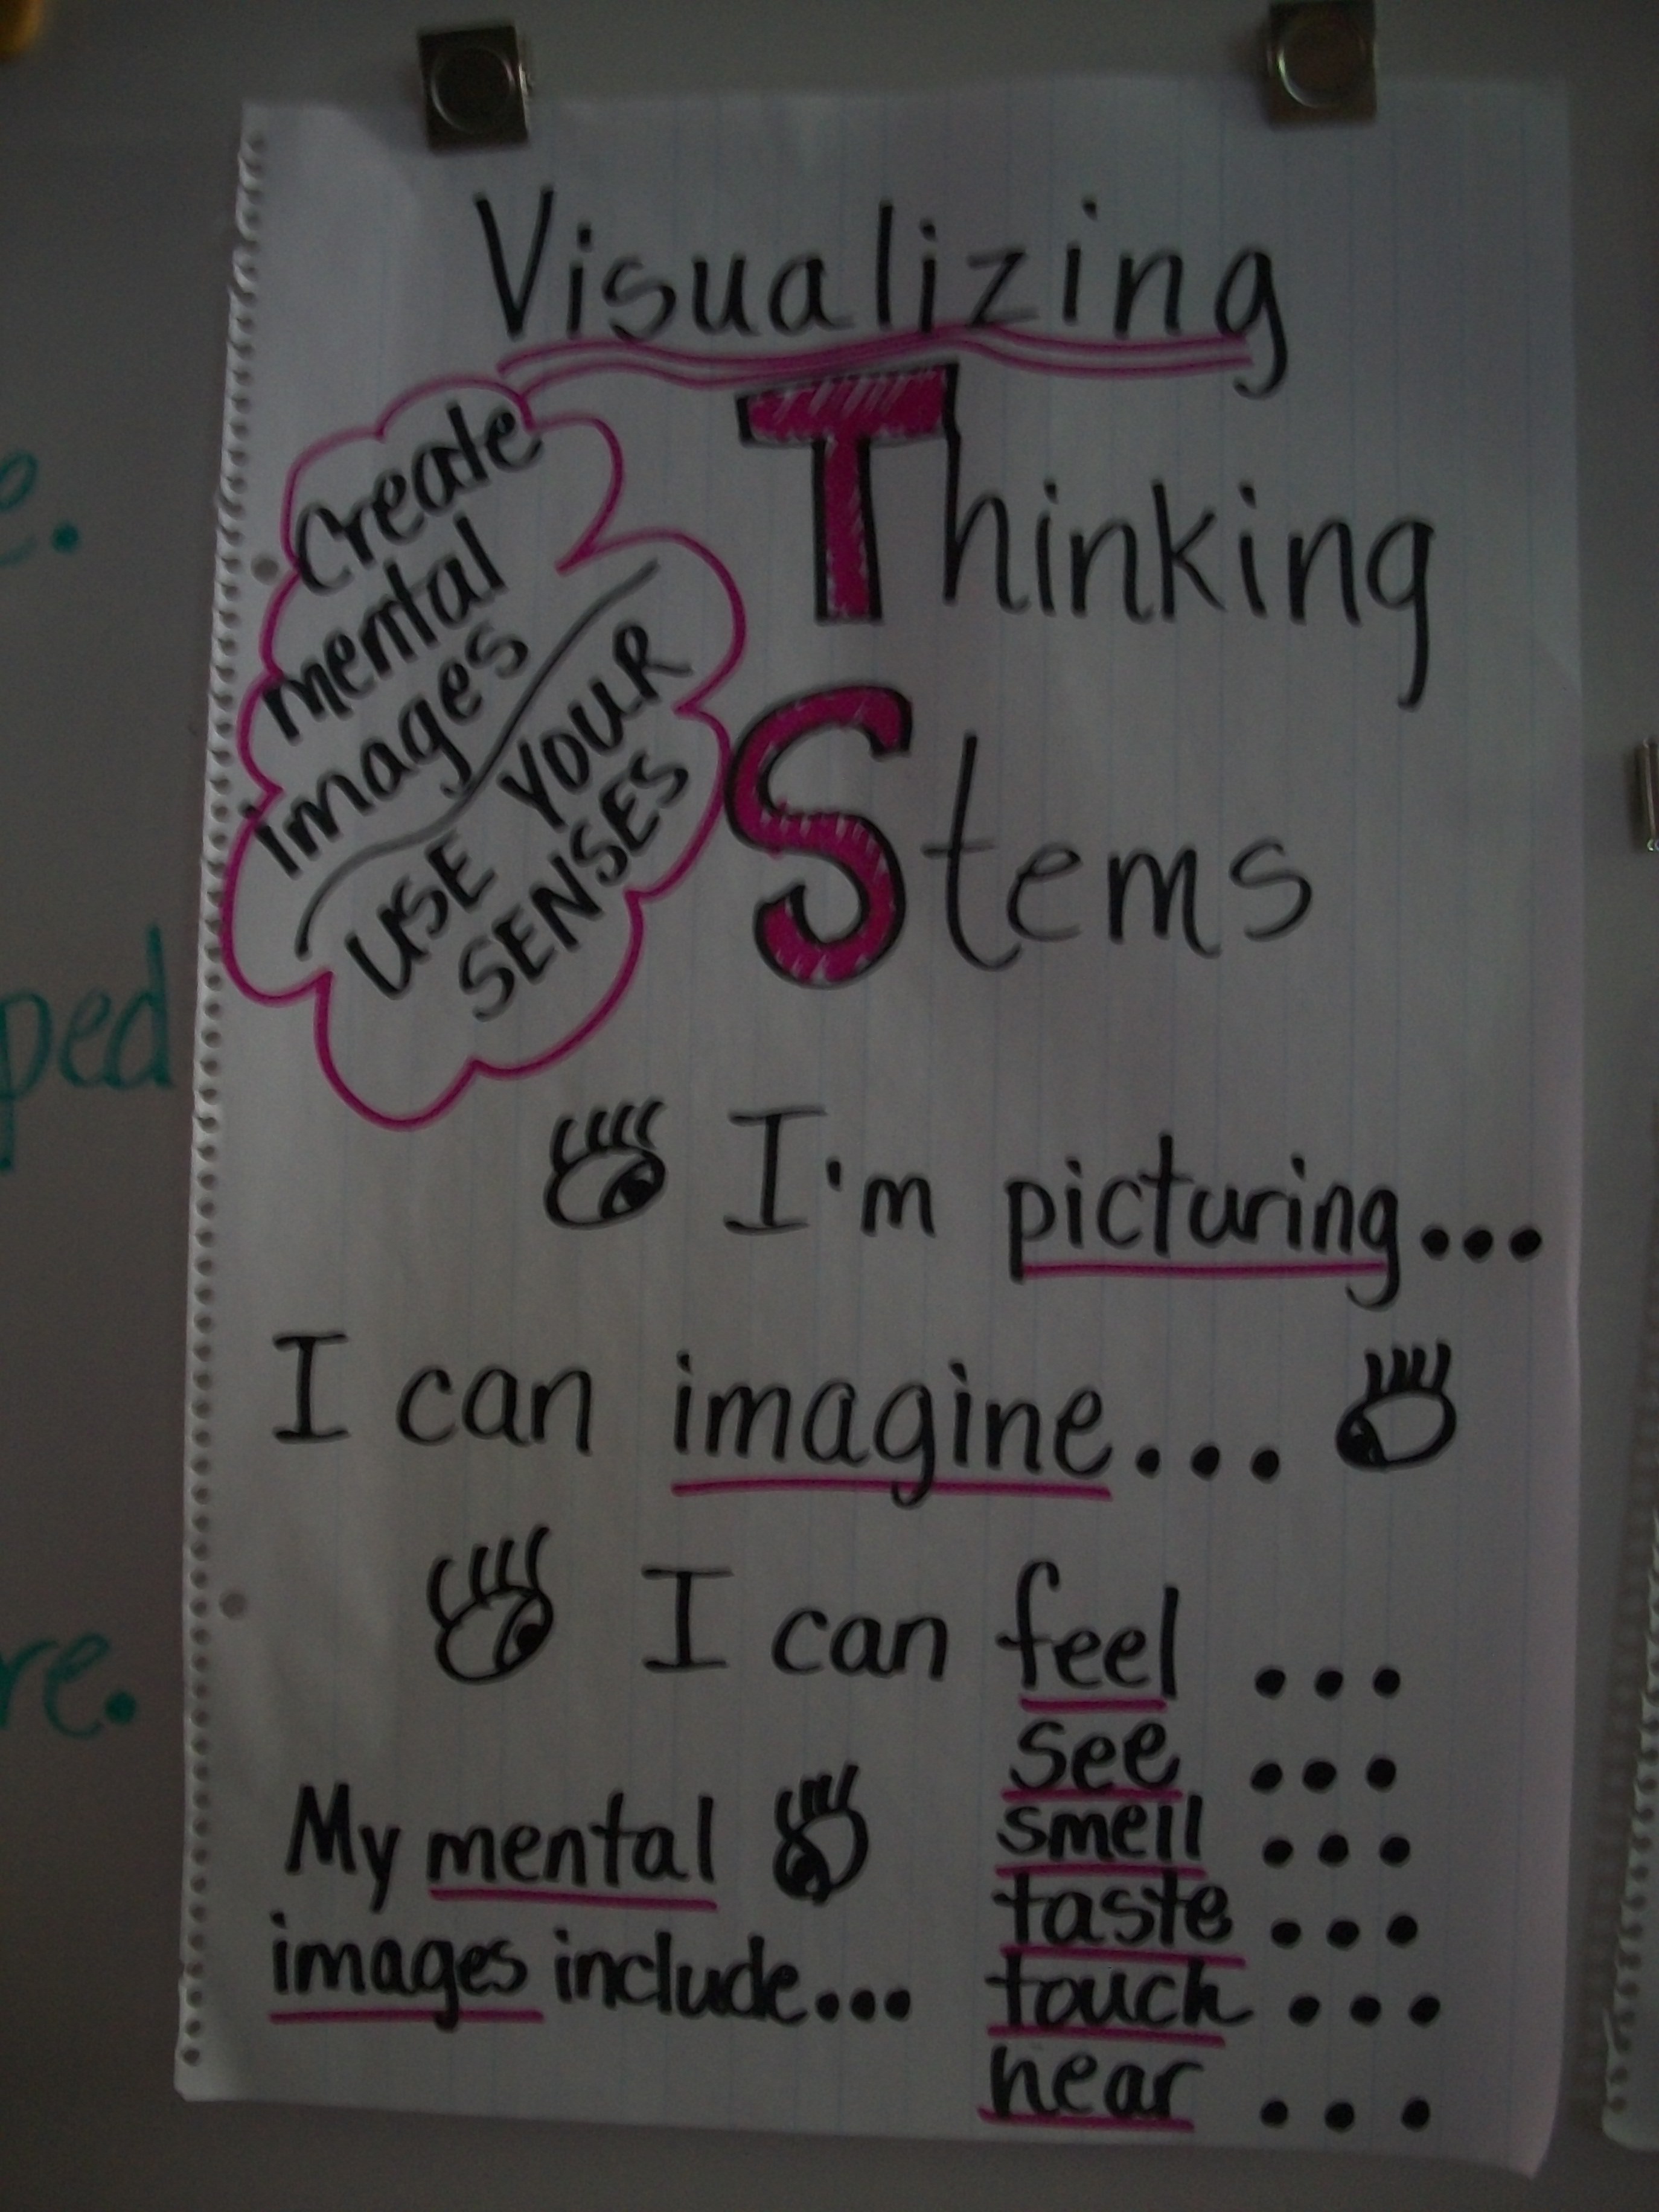 Visualizing
Thinking
Stems
Create
mental
images
USE YOUR
SENSES
I'm picturing...
I can imagine...
I can feel ...
see ...
smell ...
taste ...
touch ...
hear ...
My mental
images include...
e.
ped
re.